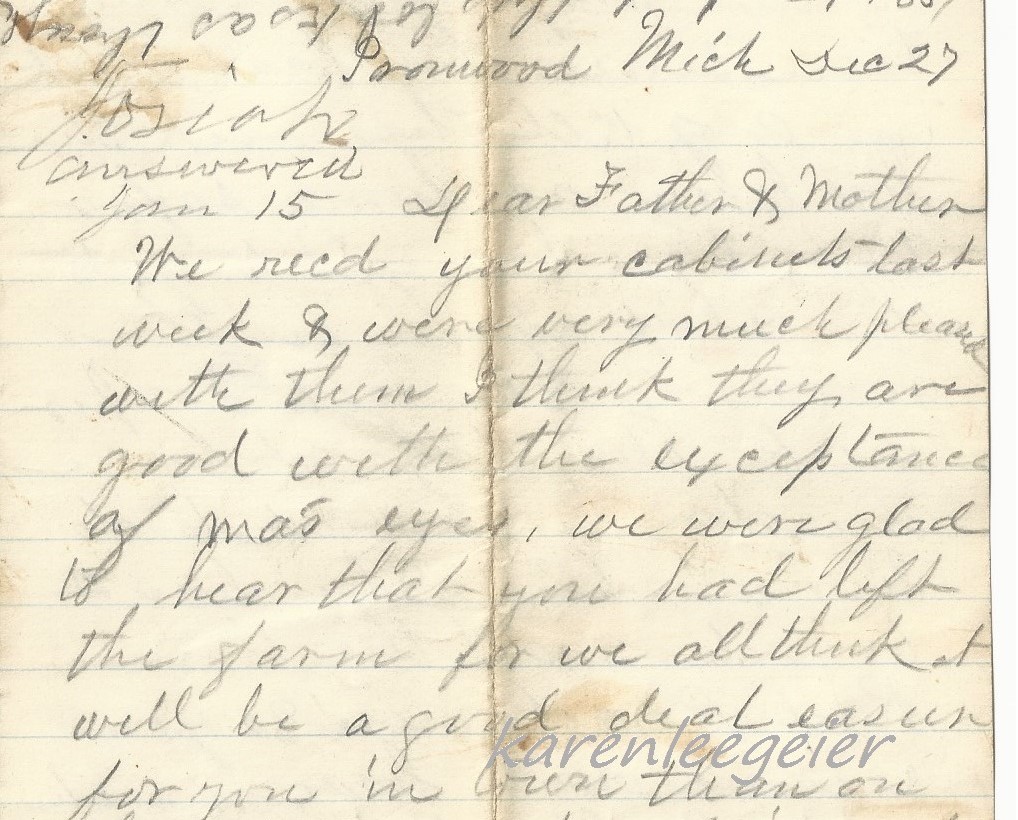 Ironwood Mich Dec 27
Josiah
answered
Jan 15 Dear Father & Mother
We recd your cabinets last
week & were very much pleased
with them I think they are
good with the exceptance
of ma's eyes, we were glad
to hear that you had left
the farm for we all think it
will be a good deal easier
karenleegeier
for you in town than on